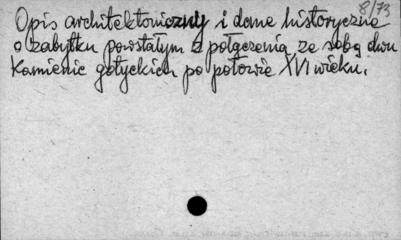 8/73
Opis architektoniczny i dane historyczne
o zabytku powstałym z połączenia ze sobą dwu
kamienic gotyckich po połowie XVI wieku.